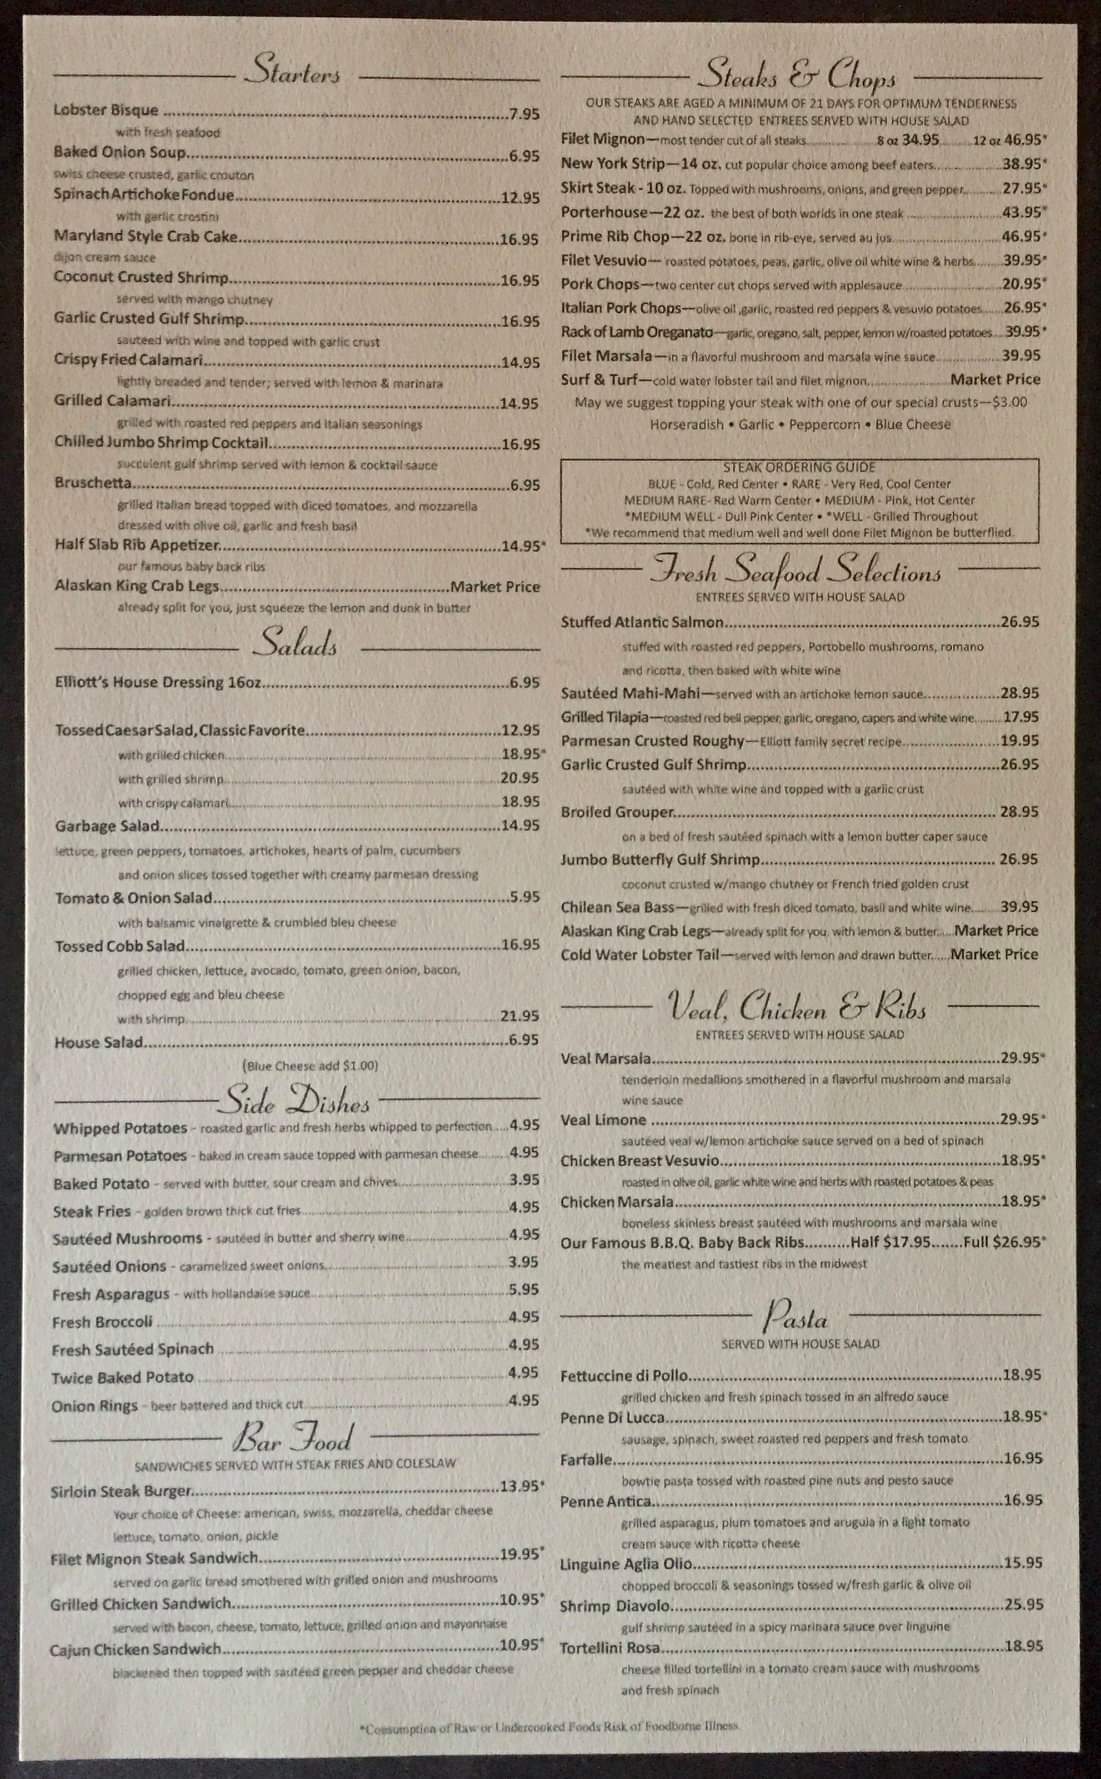 Starters
Lobster Bisque ........7.95
with fresh seafood
Baked Onion Soup........6.95
swiss cheese crusted, garlic crouton
Spinach Artichoke Fondue........12.95
with garlic crostini
Maryland Style Crab Cake........16.95
dijon cream sauce
Coconut Crusted Shrimp........16.95
served with mango chutney
Garlic Crusted Gulf Shrimp........16.95
sauteed with wine and topped with garlic crust
Crispy Fried Calamari........14.95
lightly breaded and tender; served with lemon & marinara
Grilled Calamari........14.95
grilled with roasted red peppers and Italian seasonings
Chilled Jumbo Shrimp Cocktail........16.95
succulent gulf shrimp served with lemon & cocktail sauce
Bruschetta........6.95
grilled Italian bread topped with diced tomatoes, and mozzarella
dressed with olive oil, garlic and fresh basil
Half Slab Rib Appetizer........14.95*
our famous baby back ribs
Alaskan King Crab Legs........Market Price
already split for you, just squeeze the lemon and dunk in butter
Salads
Elliott's House Dressing 16oz........6.95
Tossed Caesar Salad, Classic Favorite........12.95
with grilled chicken........18.95*
with grilled shrimp........20.95
with crispy calamari........18.95
Garbage Salad........14.95
lettuce, green peppers, tomatoes, artichokes, hearts of palm, cucumbers
and onion slices tossed together with creamy parmesan dressing
Tomato & Onion Salad........5.95
with balsamic vinaigrette & crumbled bleu cheese
Tossed Cobb Salad........16.95
grilled chicken, lettuce, avocado, tomato, green onion, bacon,
chopped egg and bleu cheese
with shrimp........21.95
House Salad........6.95
(Blue Cheese add $1.00)
Side Dishes
Whipped Potatoes - roasted garlic and fresh herbs whipped to perfection ....4.95
Parmesan Potatoes - baked in cream sauce topped with parmesan cheese........4.95
Baked Potato - served with butter, sour cream and chives........3.95
Steak Fries - golden brown thick cut fries........4.95
Sautéed Mushrooms - sautéed in butter and sherry wine........4.95
Sautéed Onions - caramelized sweet onions........3.95
Fresh Asparagus - with hollandaise sauce........5.95
Fresh Broccoli ........4.95
Fresh Sautéed Spinach ........4.95
Twice Baked Potato ........4.95
Onion Rings - beer battered and thick cut........4.95
Bar Food
SANDWICHES SERVED WITH STEAK FRIES AND COLESLAW
Sirloin Steak Burger........13.95*
Your choice of Cheese: american, swiss, mozzarella, cheddar cheese
lettuce, tomato, onion, pickle
Filet Mignon Steak Sandwich........19.95*
served on garlic bread smothered with grilled onion and mushrooms
Grilled Chicken Sandwich........10.95*
served with bacon, cheese, tomato, lettuce, grilled onion and mayonnaise
Cajun Chicken Sandwich........10.95*
blackened then topped with sautéed green pepper and cheddar cheese
Steaks & Chops
OUR STEAKS ARE AGED A MINIMUM OF 21 DAYS FOR OPTIMUM TENDERNESS
AND HAND SELECTED ENTREES SERVED WITH HOUSE SALAD
Filet Mignon—most tender cut of all steaks........8 oz 34.95........12 oz 46.95*
New York Strip—14 oz. cut popular choice among beef eaters........38.95*
Skirt Steak - 10 oz. Topped with mushrooms, onions, and green pepper........27.95*
Porterhouse—22 oz. the best of both worlds in one steak ........43.95*
Prime Rib Chop—22 oz. bone in rib-eye, served au jus........46.95*
Filet Vesuvio— roasted potatoes, peas, garlic, olive oil white wine & herbs........39.95*
Pork Chops—two center cut chops served with applesauce ........20.95*
Italian Pork Chops—olive oil ,garlic, roasted red peppers & vesuvio potatoes......26.95*
Rack of Lamb Oreganato—garlic, oregano, salt, pepper, lemon w/roasted potatoes....39.95*
Filet Marsala—in a flavorful mushroom and marsala wine sauce........39.95
Surf & Turf—cold water lobster tail and filet mignon........Market Price
May we suggest topping your steak with one of our special crusts—$3.00
Horseradish • Garlic • Peppercorn • Blue Cheese
STEAK ORDERING GUIDE
BLUE - Cold, Red Center • RARE - Very Red, Cool Center
MEDIUM RARE- Red Warm Center • MEDIUM - Pink, Hot Center
*MEDIUM WELL - Dull Pink Center • *WELL - Grilled Throughout
*We recommend that medium well and well done Filet Mignon be butterflied.
Fresh Seafood Selections
ENTREES SERVED WITH HOUSE SALAD
Stuffed Atlantic Salmon........26.95
stuffed with roasted red peppers, Portobello mushrooms, romano
and ricotta, then baked with white wine
Sautéed Mahi-Mahi—served with an artichoke lemon sauce........28.95
Grilled Tilapia—roasted red bell pepper, garlic, oregano, capers and white wine........17.95
Parmesan Crusted Roughy—Elliott family secret recipe........19.95
Garlic Crusted Gulf Shrimp........26.95
sautéed with white wine and topped with a garlic crust
Broiled Grouper........ 28.95
on a bed of fresh sautéed spinach with a lemon butter caper sauce
Jumbo Butterfly Gulf Shrimp........ 26.95
coconut crusted w/mango chutney or French fried golden crust
Chilean Sea Bass—grilled with fresh diced tomato, basil and white wine........39.95
Alaskan King Crab Legs—already split for you, with lemon & butter.....Market Price
Cold Water Lobster Tail—served with lemon and drawn butter.....Market Price
Veal, Chicken & Ribs
ENTREES SERVED WITH HOUSE SALAD
Veal Marsala........29.95*
tenderloin medallions smothered in a flavorful mushroom and marsala
wine sauce
Veal Limone ........29.95*
sautéed veal w/lemon artichoke sauce served on a bed of spinach
Chicken Breast Vesuvio........18.95*
roasted in olive oil, garlic white wine and herbs with roasted potatoes & peas
Chicken Marsala........18.95*
boneless skinless breast sautéed with mushrooms and marsala wine
Our Famous B.B.Q. Baby Back Ribs..........Half $17.95.......Full $26.95*
the meatiest and tastiest ribs in the midwest
Pasta
SERVED WITH HOUSE SALAD
Fettuccine di Pollo........18.95
grilled chicken and fresh spinach tossed in an alfredo sauce
Penne Di Lucca........18.95*
sausage, spinach, sweet roasted red peppers and fresh tomato
Farfalle........16.95
bowtie pasta tossed with roasted pine nuts and pesto sauce
Penne Antica........16.95
grilled asparagus, plum tomatoes and arugula in a light tomato
cream sauce with ricotta cheese
Linguine Aglia Olio........15.95
chopped broccoli & seasonings tossed w/fresh garlic & olive oil
Shrimp Diavolo........25.95
gulf shrimp sautéed in a spicy marinara sauce over linguine
Tortellini Rosa........18.95
cheese filled tortellini in a tomato cream sauce with mushrooms
and fresh spinach
*Consumption of Raw or Undercooked Foods Risk of Foodborne Illness